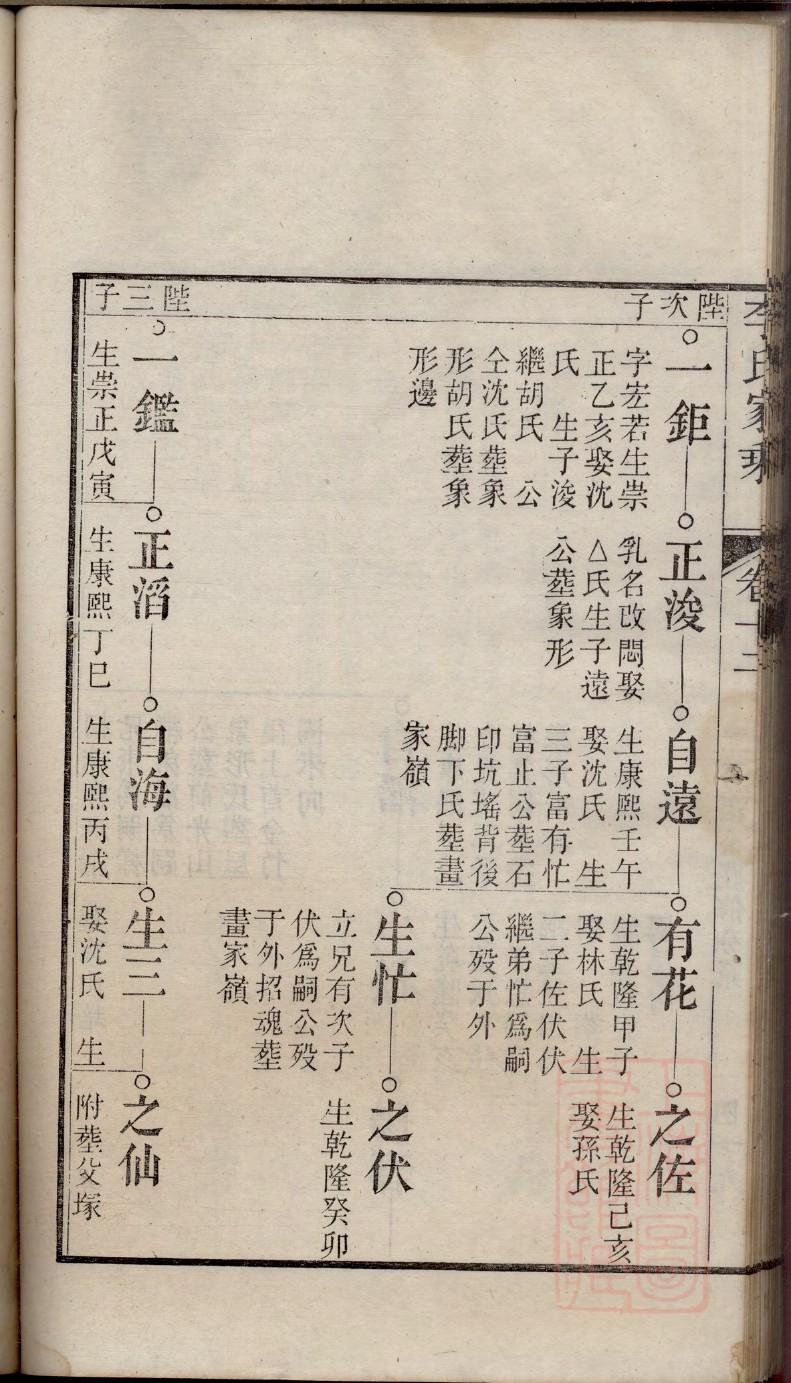 李氏家乘
卷十三
陛次子
一鉅
字宏若生崇
正乙亥娶沈
氏 生子浚
繼胡氏 公
仝沈氏塟象
形胡氏塟象
形邊
正浚
乳名改悶娶
△氏生子遠
公塟象形
自遠
生康熙壬午
娶沈氏 生
三子富有忙
富止公塟石
印坑墝背後
脚下氏塟畫
家嶺
有花
生乾隆甲子
娶林氏 生
二子佐伏伏
繼弟忙爲嗣
公歿于外
之佐
生乾隆己亥
娶孫氏
生忙
立兄有次子
伏爲嗣公歿
于外招魂塟
畫家嶺
之伏
生乾隆癸卯
陛三子
一鑑
生崇正戊寅
正滔
生康熙丁巳
自海
生康熙丙戌
生三
娶沈氏 生
之仙
附塟父塚